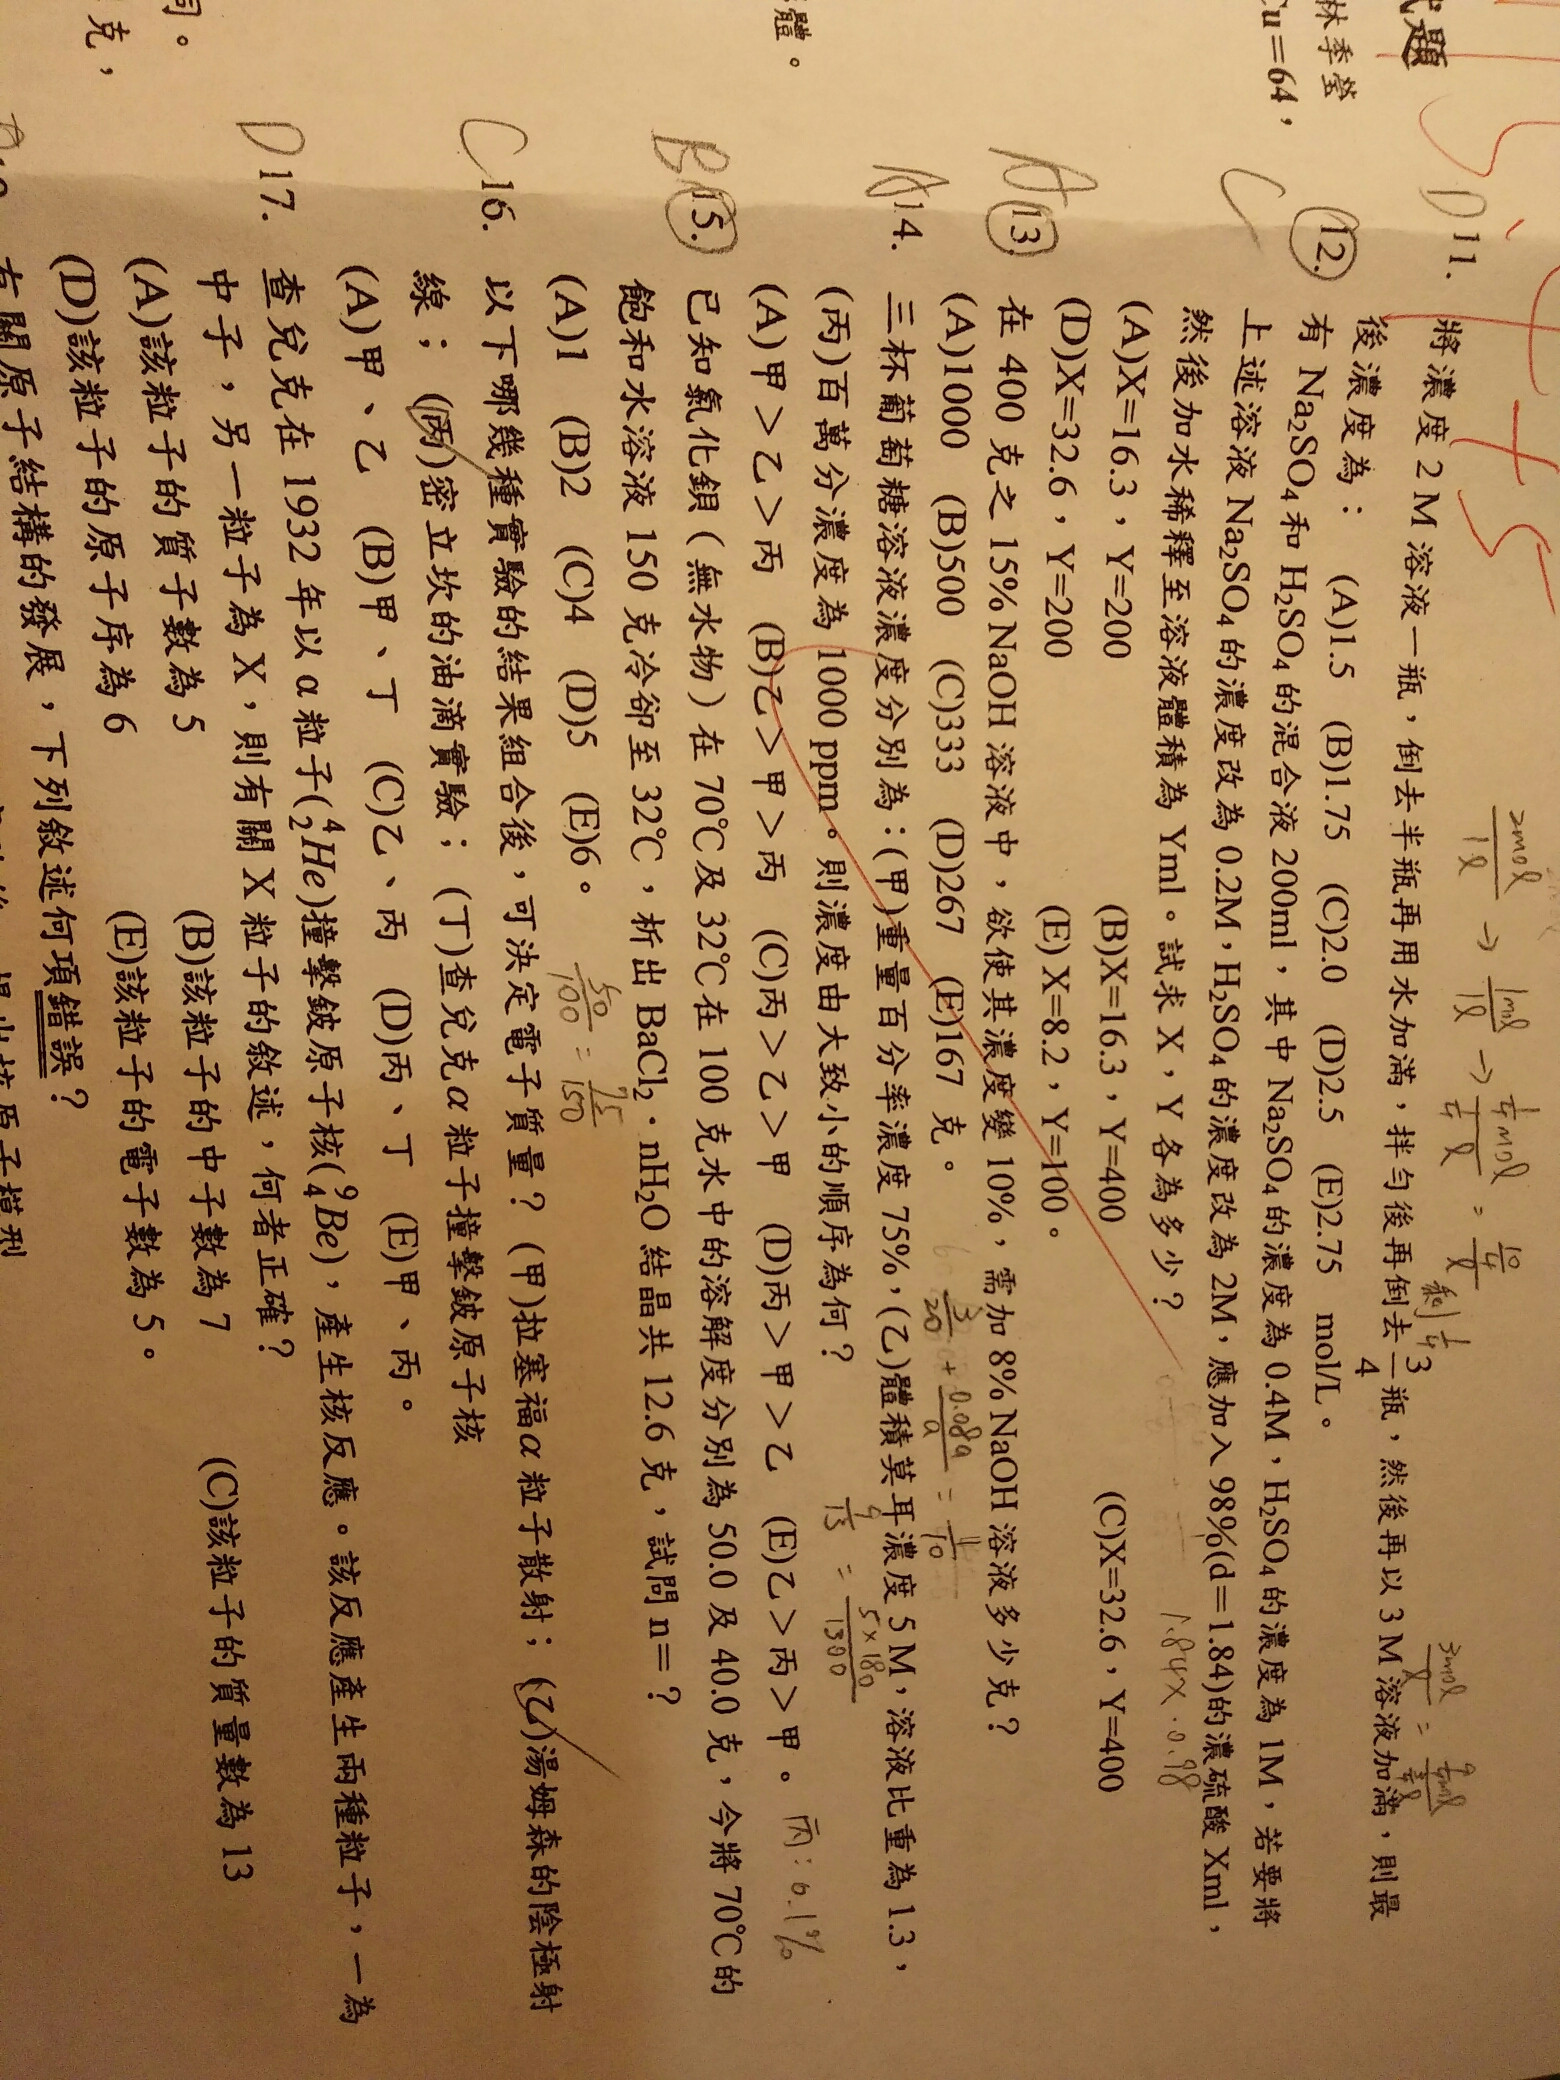 試題
林季瑩
Cu=64，
體。
同。
克，
D 11. 將濃度 2 M 溶液一瓶，倒去半瓶再用水加滿，拌勻後再倒去 3/4 瓶，然後再以 3 M 溶液加滿，則最
後濃度為： (A)1.5 (B)1.75 (C)2.0 (D)2.5 (E)2.75 mol/L。
C 12. 有 Na₂SO₄ 和 H₂SO₄ 的混合液 200ml，其中 Na₂SO₄ 的濃度為 0.4M，H₂SO₄ 的濃度為 1M，若要將
上述溶液 Na₂SO₄ 的濃度改為 0.2M，H₂SO₄ 的濃度改為 2M，應加入 98%(d=1.84)的濃硫酸 Xml，
然後加水稀釋至溶液體積為 Yml。試求 X，Y 各為多少？
(A)X=16.3，Y=200 (B)X=16.3，Y=400 (C)X=32.6，Y=400
(D)X=32.6，Y=200 (E) X=8.2，Y=100。
A 13. 在 400 克之 15% NaOH 溶液中，欲使其濃度變 10%，需加 8% NaOH 溶液多少克？
(A)1000 (B)500 (C)333 (D)267 (E)167 克。
A 14. 三杯葡萄糖溶液濃度分別為：(甲)重量百分率濃度 75%，(乙)體積莫耳濃度 5 M，溶液比重為 1.3，
(丙)百萬分濃度為 1000 ppm。則濃度由大致小的順序為何？
(A)甲＞乙＞丙 (B)乙＞甲＞丙 (C)丙＞乙＞甲 (D)丙＞甲＞乙 (E)乙＞丙＞甲。
B 15. 已知氯化鋇（無水物）在 70℃及 32℃在 100 克水中的溶解度分別為 50.0 及 40.0 克，今將 70℃的
飽和水溶液 150 克冷卻至 32℃，析出 BaCl₂．nH₂O 結晶共 12.6 克，試問 n＝？
(A)1 (B)2 (C)4 (D)5 (E)6。
C 16. 以下哪幾種實驗的結果組合後，可決定電子質量？ (甲)拉塞福 α 粒子散射； (乙)湯姆森的陰極射
線； (丙)密立坎的油滴實驗； (丁)查兌克 α 粒子撞擊鈹原子核
(A)甲、乙 (B)甲、丁 (C)乙、丙 (D)丙、丁 (E)甲、丙。
D 17. 查兌克在 1932 年以 α 粒子(⁴₂He)撞擊鈹原子核(⁹₄Be)，產生核反應。該反應產生兩種粒子，一為
中子，另一粒子為 X，則有關 X 粒子的敘述，何者正確？
(A)該粒子的質子數為 5 (B)該粒子的中子數為 7 (C)該粒子的質量數為 13
(D)該粒子的原子序為 6 (E)該粒子的電子數為 5。
有關原子結構的發展，下列敘述何項錯誤？
2mol/1l → 1mol/1l →
剩 1/4
1.84X·0.98
3/20 + 0.08a/a = 1/10
5×180/1300
丙：0.1%
50/100 = 75/150